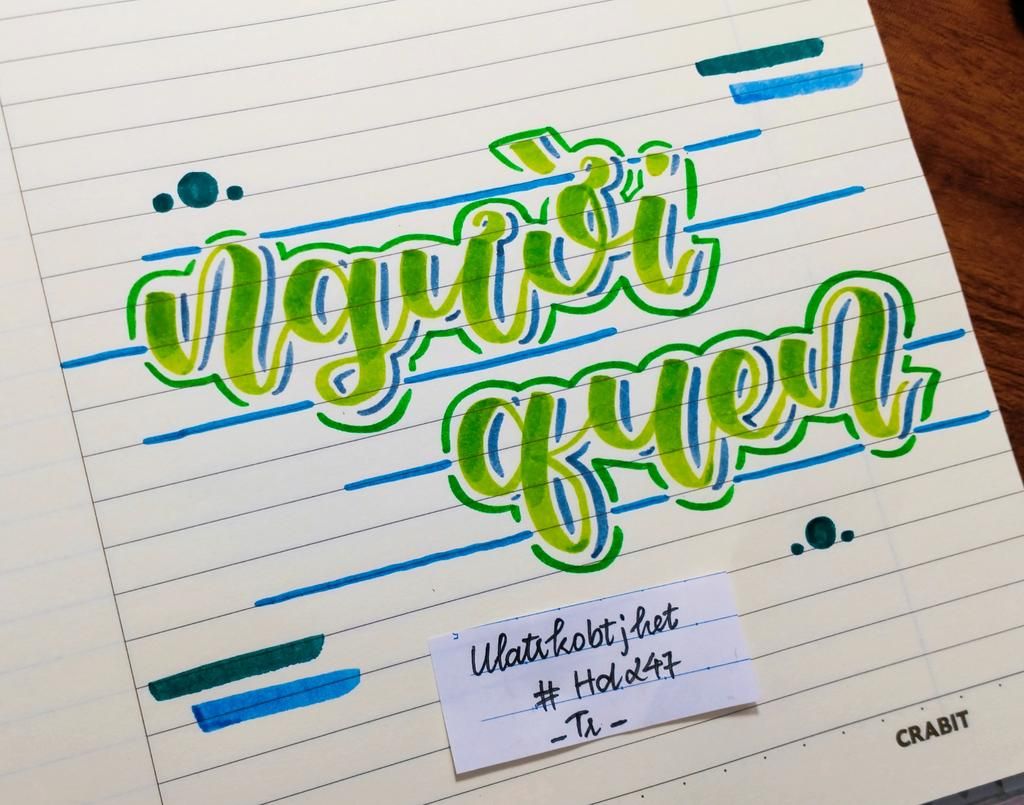 người
quen
Ulatrkobtjhet
# Hdx247
- Tr -
CRABIT